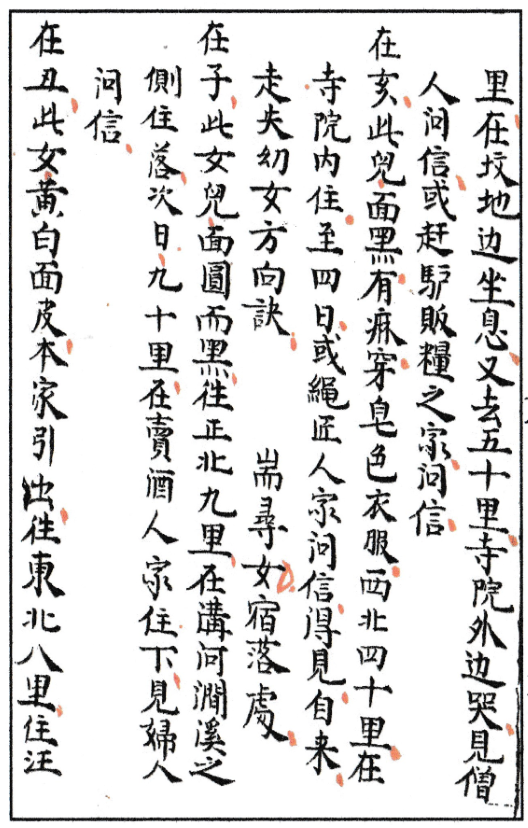 里在坟地边坐息又去五十里寺院外边哭見僧
人问信或赶馿販糧之家问信
在亥此兒面黑有麻穿皂色衣服西北四十里在
寺院内住至四日或繩匠人家问信得見自来
走失幼女方向訣　　耑尋女宿落處
在子此女兒面圓而黑徃正北九里在溝河澗溪之
側住落次日九十里在賣酒人家住下見婦人
问信
在丑此女黄白面皮本家引出徃東北八里住汪